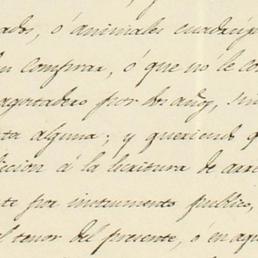 ados, ó animales cuadrúp
en comprar, ó que no le co
agostadero por dos años, sin
ta alguna; y queriendo q
dicion á la escritura de arr
te por instrumento publico,
el tenor del presente, ó en aqu